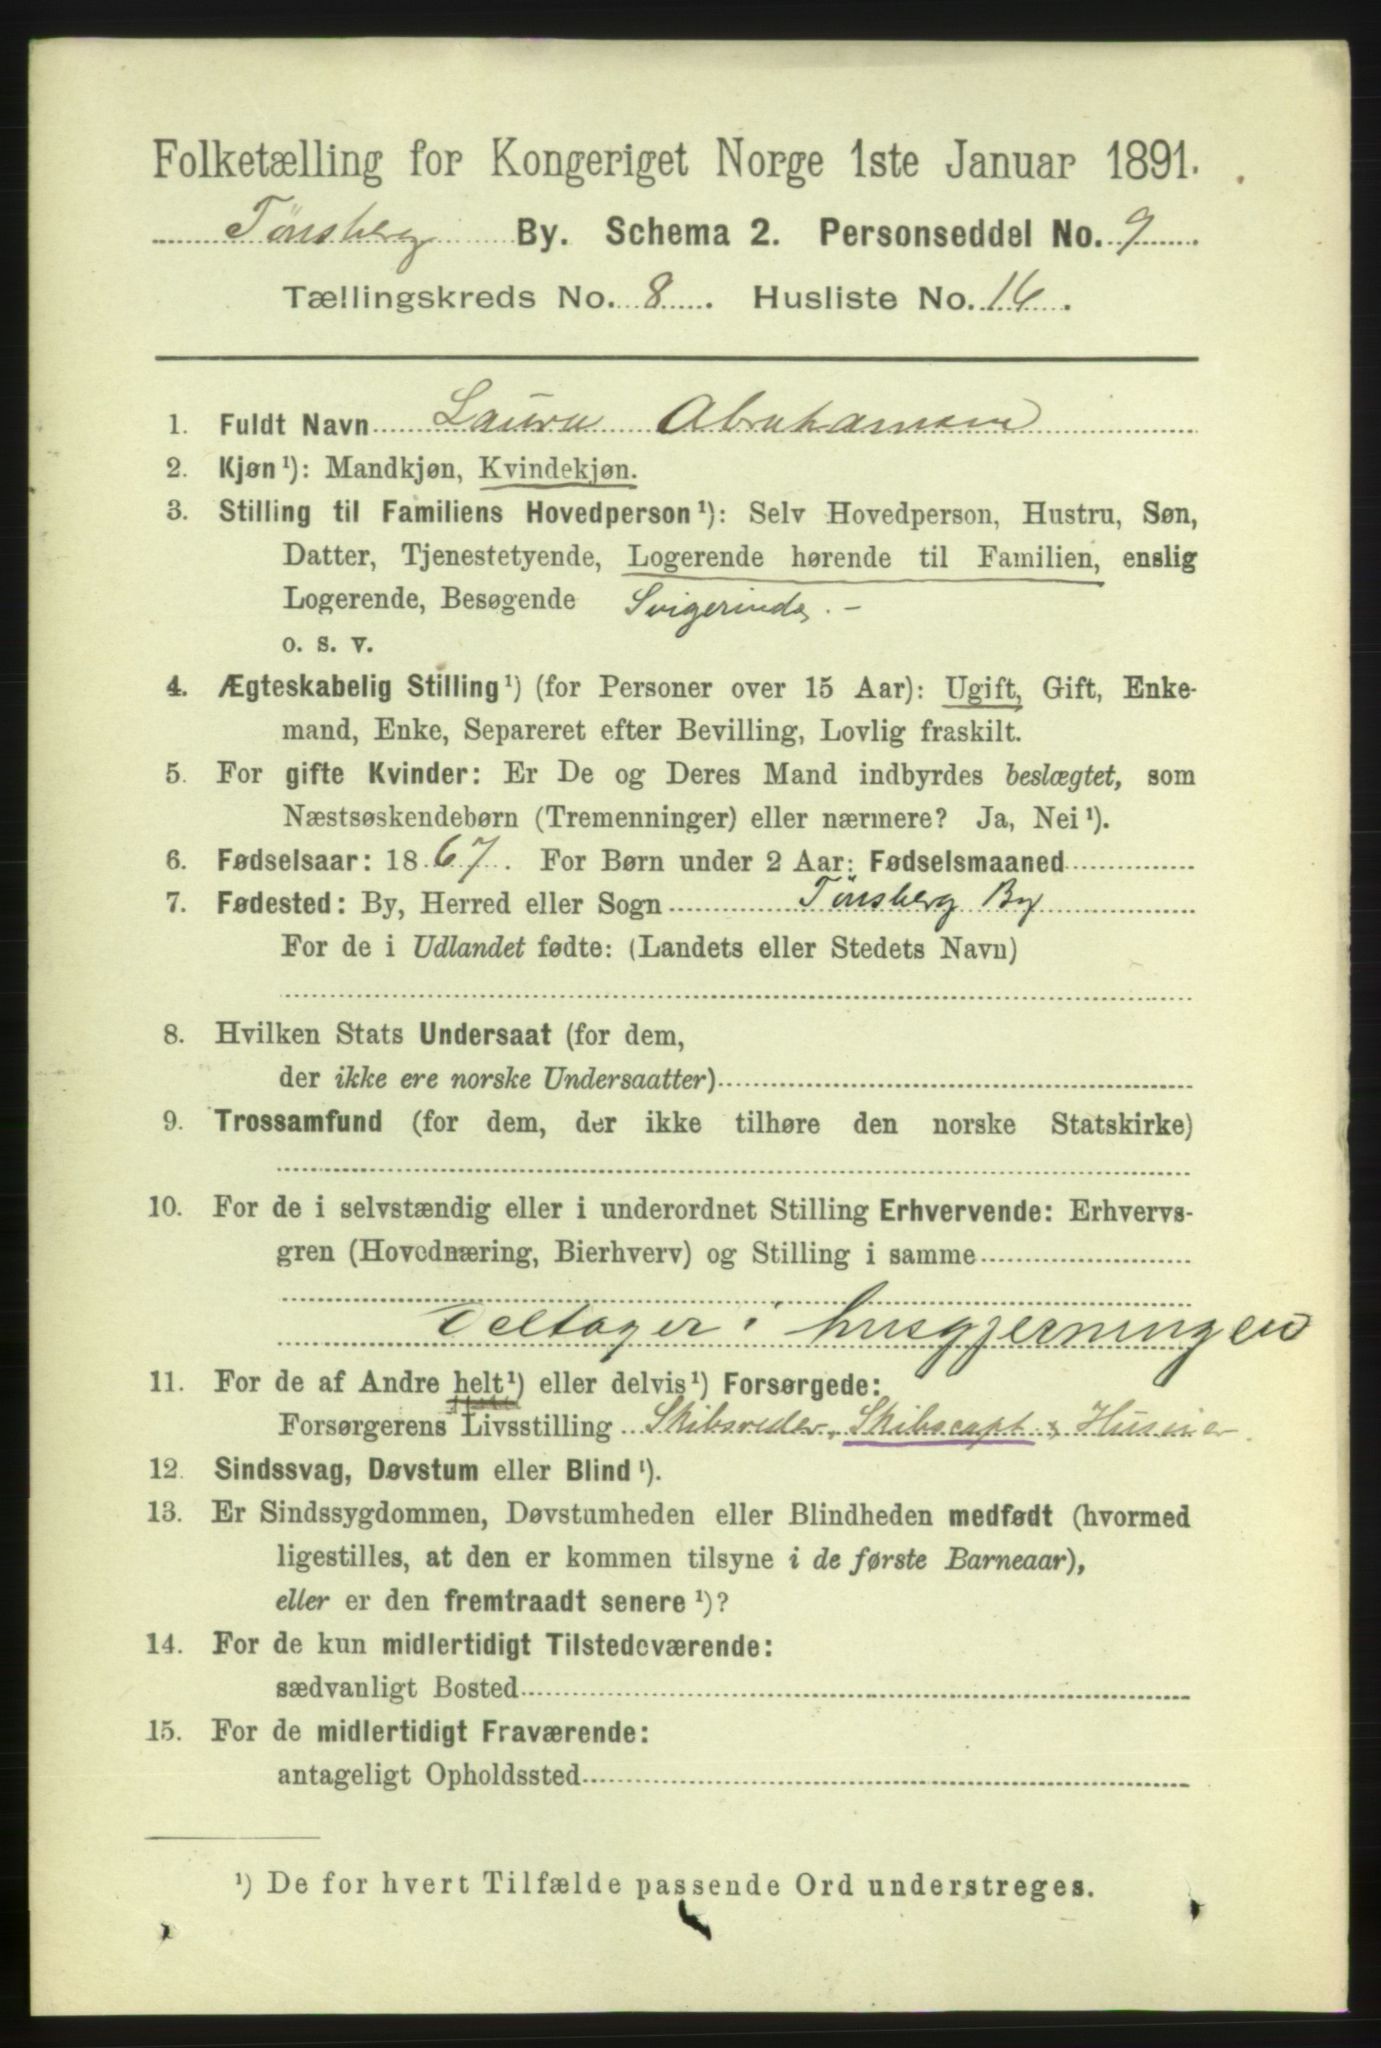 Folketælling for Kongeriget Norge 1ste Januar 1891.
Tønsberg By. Schema 2. Personseddel No. 9
Tællingskreds No. 8. Husliste No. 16.
1. Fuldt Navn Laura Abrahamsen
2. Kjøn¹): Mandkjøn, Kvindekjøn.
3. Stilling til Familiens Hovedperson¹): Selv Hovedperson, Hustru, Søn,
Datter, Tjenestetyende, Logerende hørende til Familien, enslig
Logerende, Besøgende Svigerinde. –
o. s. v.
4. Ægteskabelig Stilling¹) (for Personer over 15 Aar): Ugift, Gift, Enke-
mand, Enke, Separeret efter Bevilling, Lovlig fraskilt.
5. For gifte Kvinder: Er De og Deres Mand indbyrdes beslægtet, som
Næstsøskendebørn (Tremenninger) eller nærmere? Ja, Nei¹).
6. Fødselsaar: 1867. For Børn under 2 Aar: Fødselsmaaned
7. Fødested: By, Herred eller Sogn Tønsberg By
For de i Udlandet fødte: (Landets eller Stedets Navn)
8. Hvilken Stats Undersaat (for dem,
der ikke ere norske Undersaatter)
9. Trossamfund (for dem, der ikke tilhøre den norske Statskirke)
10. For de i selvstændig eller i underordnet Stilling Erhvervende: Erhvervs-
gren (Hovednæring, Bierhverv) og Stilling i samme
Deltager i husgjerningen
11. For de af Andre helt¹) eller delvis¹) Forsørgede:
Forsørgerens Livsstilling Skibsreder, Skibscapt. & Huseier.
12. Sindssvag, Døvstum eller Blind¹).
13. Er Sindssygdommen, Døvstumheden eller Blindheden medfødt (hvormed
ligestilles, at den er kommen tilsyne i de første Barneaar),
eller er den fremtraadt senere¹)?
14. For de kun midlertidigt Tilstedeværende:
sædvanligt Bosted
15. For de midlertidigt Fraværende:
antageligt Opholdssted
¹) De for hvert Tilfælde passende Ord understreges.